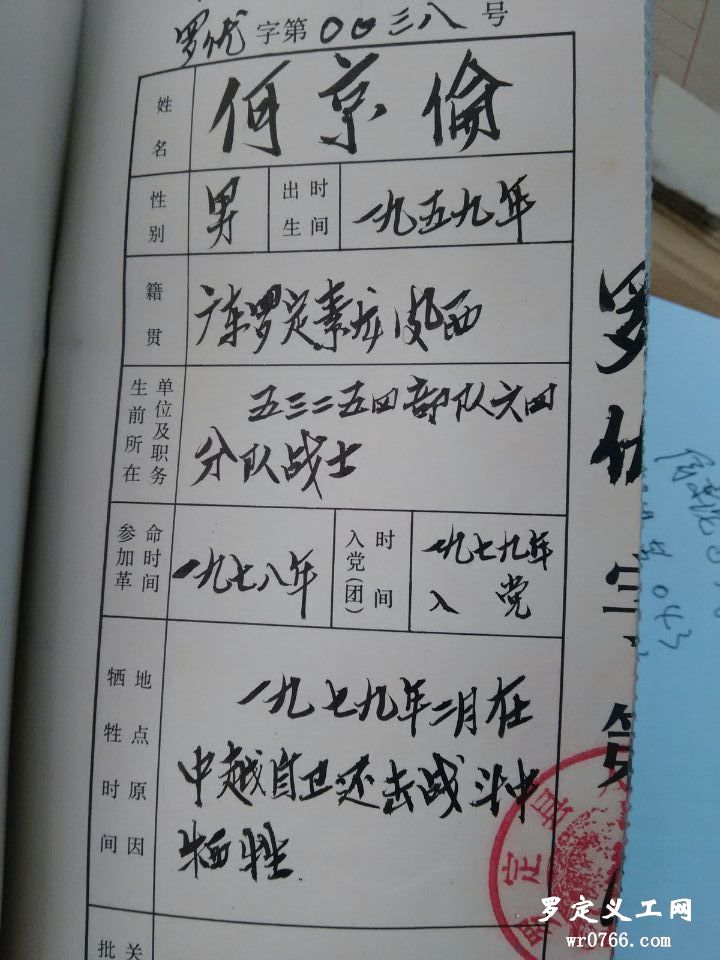 罗优字第00三八号
姓名 何京倫
性别 男 出生时间 一九五九年
籍贯 广东罗定素龙凤西
生前所在单位及职务 五三二五四部队六四
分队战士
参加革命时间 一九七八年 入党(团)时间 一九七九年
入党
牺牲时间地点原因 一九七九年二月在
中越自卫还击战斗中
牺牲
批 关
罗优字第
043
定县
罗定义工网
wr0766.com